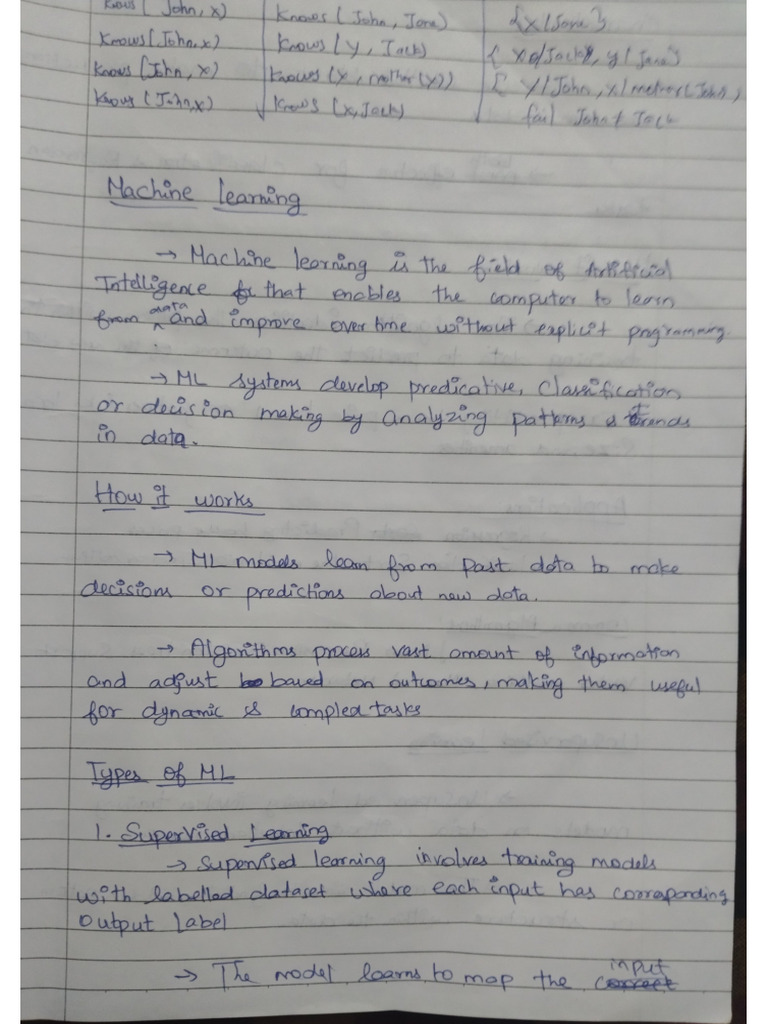 Knows (John, x) Knows (John, Jane) {x/Jane}
Knows (John, x) Knows (y, Jack) { x/Jack, y/Jane}
Knows (John, x) Knows (y, mother(y)) { y/John, x/mother(John)
Knows (John, x) Knows (x, Jack) fail John ≠ Jack
Machine Learning
→ Machine learning is the field of Artificial
Intelligence that enables the computer to learn
from data and improve over time without explicit programming
→ ML systems develop predicative, Classification
or decision making by analyzing patterns & trands
in data.
How it works
→ ML models learn from past data to make
decisions or predictions about new data.
→ Algorithms process vast amount of information
and adjust based on outcomes, making them useful
for dynamic & complea tasks
Types of ML
1. Supervised Learning
→ Supervised learning involves training models
with labelled dataset where each input has corraponding
output label
→ The model learns to map the input